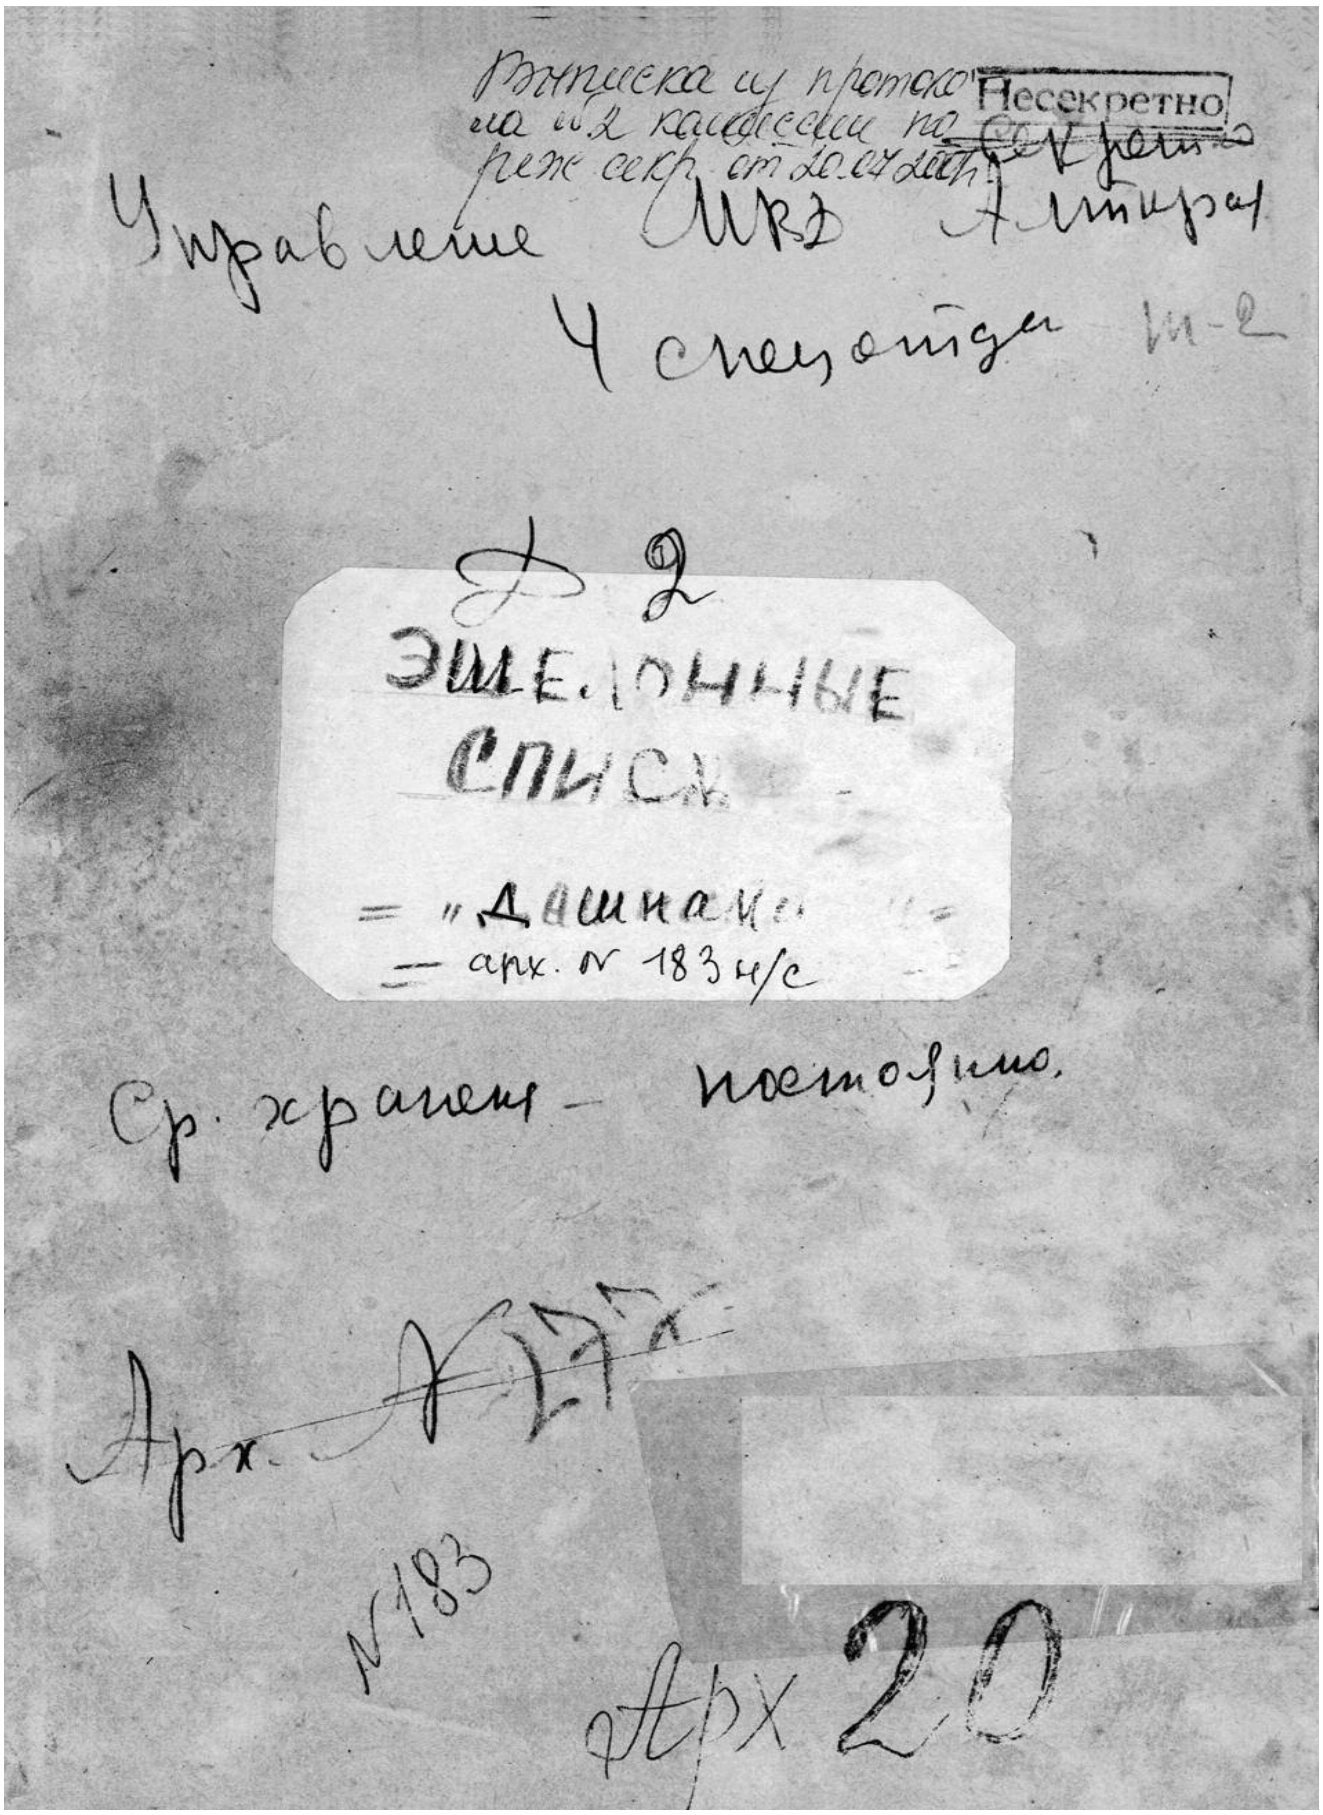 Выписка из протоко-
ла №2 комиссии по
реж секр. от 20.07.
Несекретно
Секретно
Управление МВД Алткрая
4 спецотдел т-2
Д 2
ЭШЕЛОННЫЕ
СПИСК
= "ДАШНАКИ" =
= арх. № 183 н/с
Ср. хранен - постоянно.
Арх. № 277
№183
Арх 20